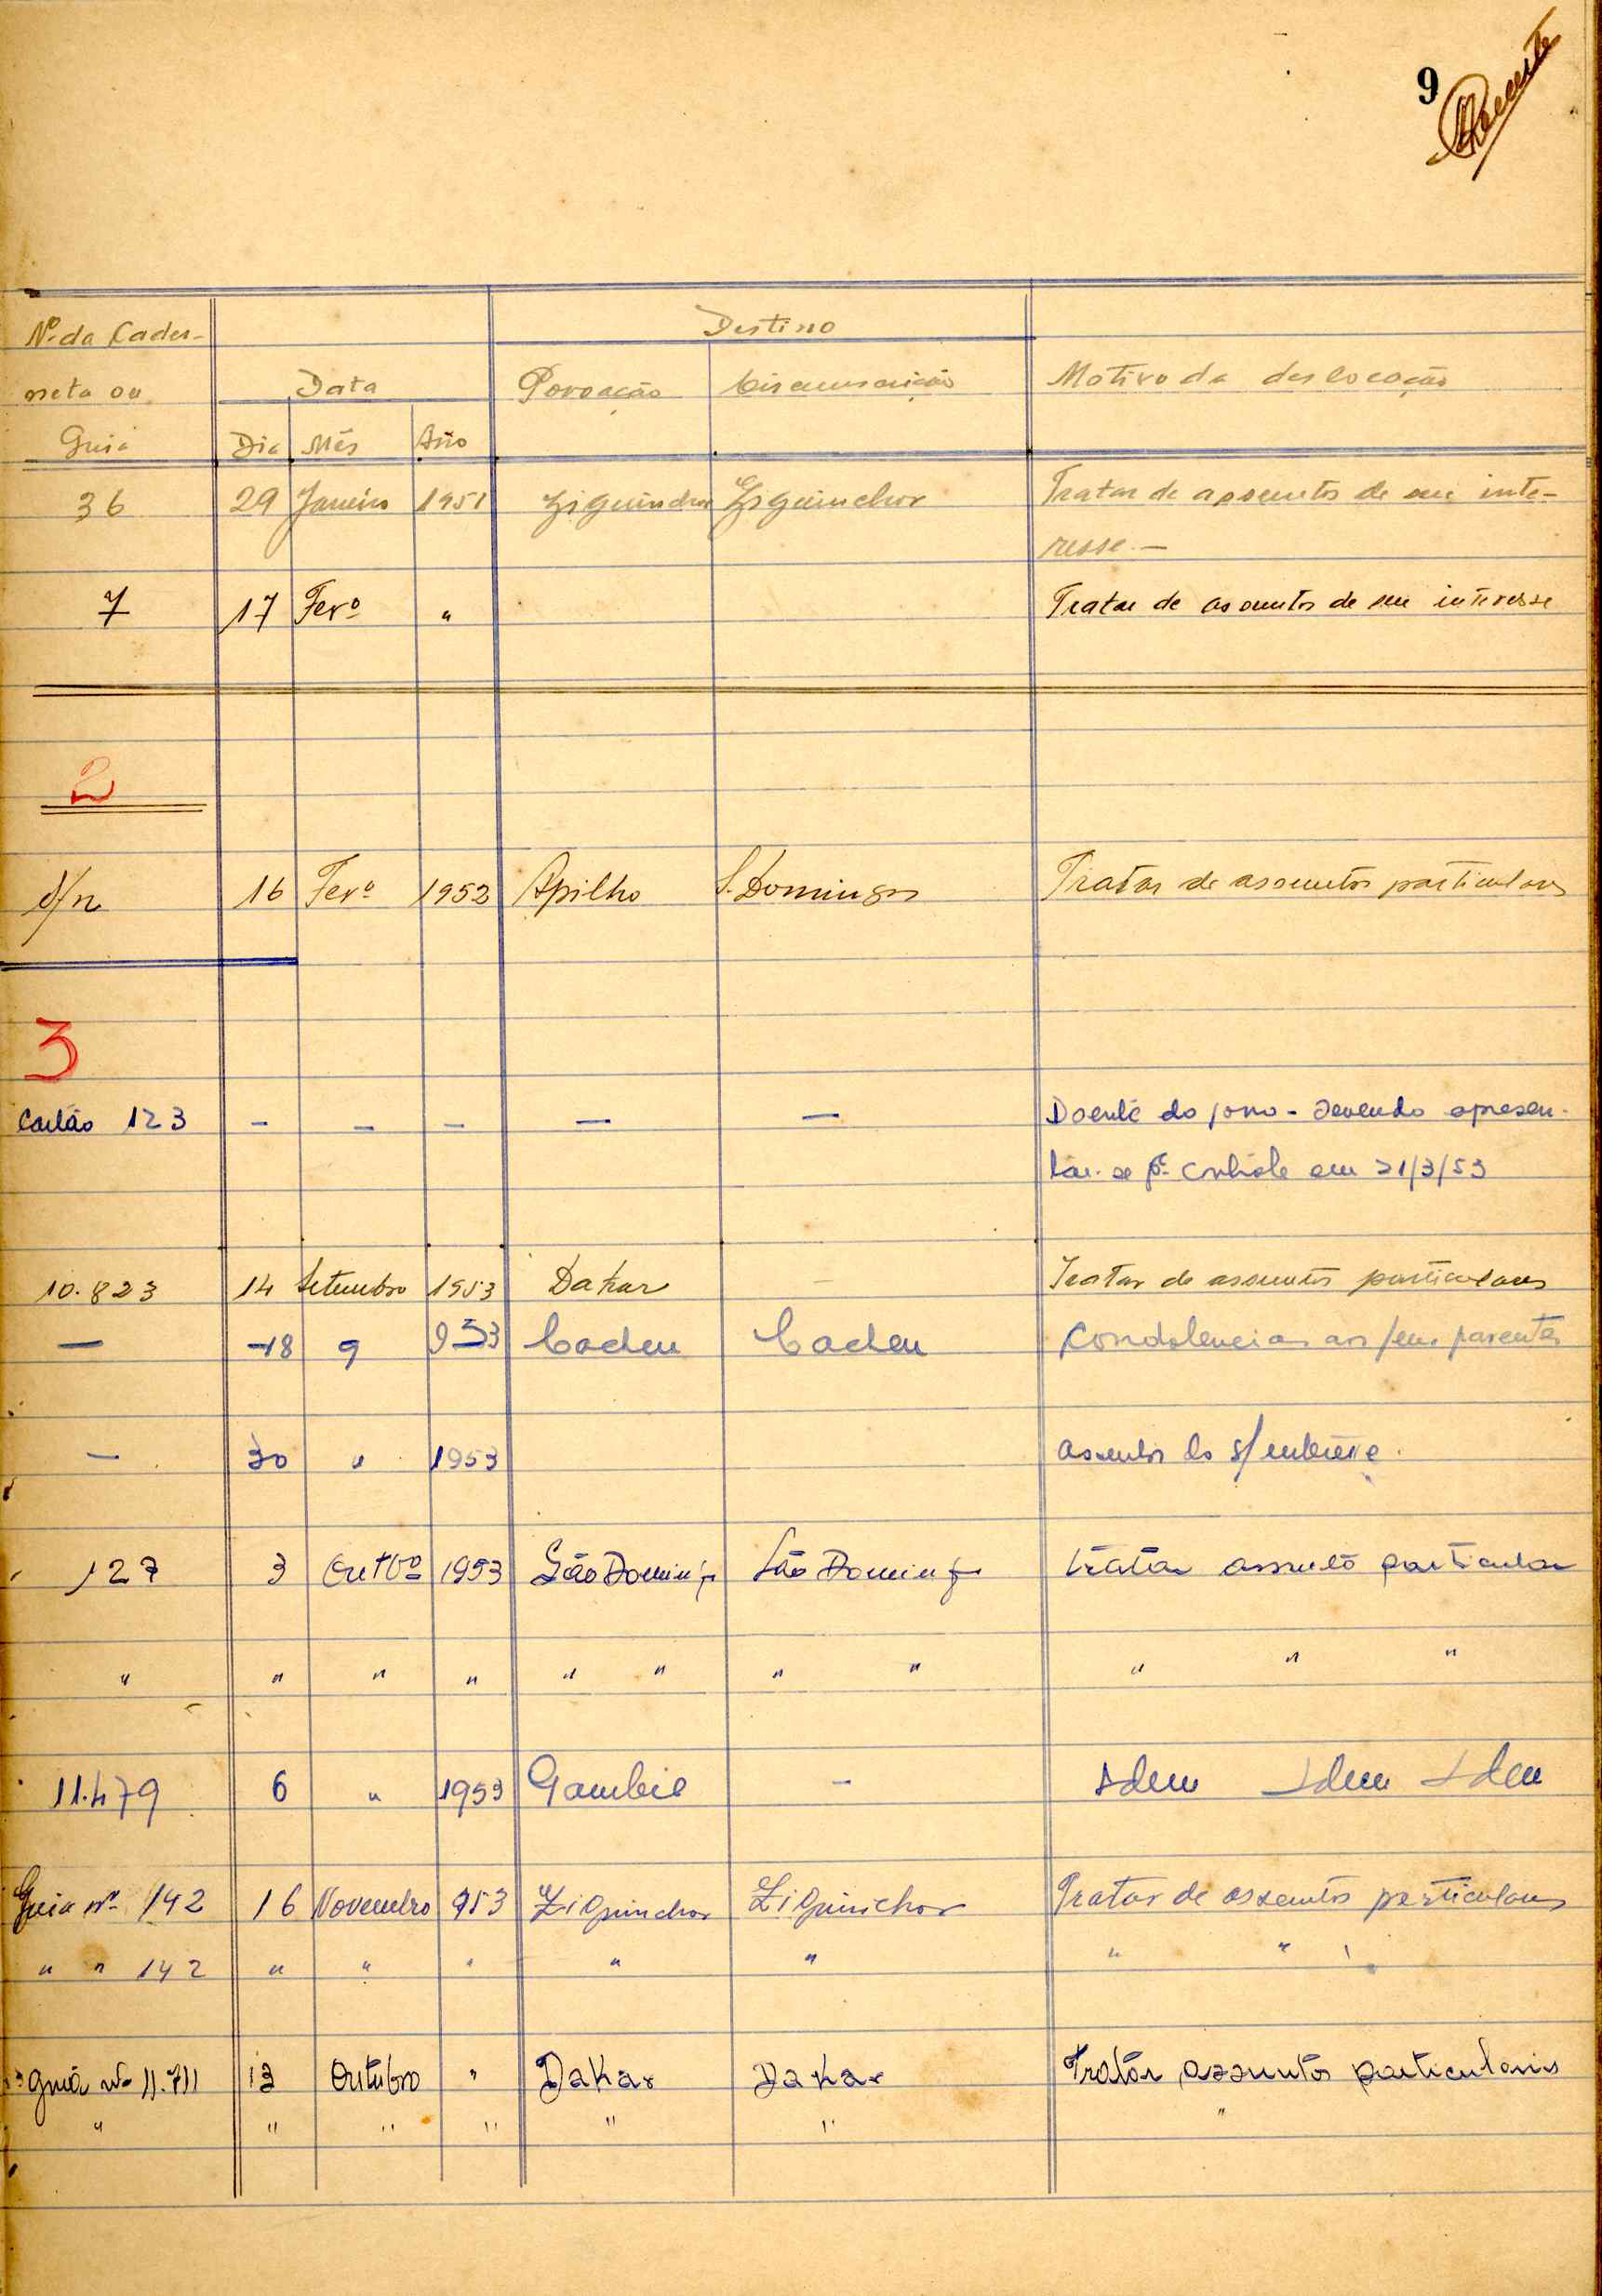 9
Nº da Cader-
neta ou
Guia
Data
Dia Mês Ano
Destino
Povoação Circunscrição
Motivo da deslocação
36 29 Janeiro 1951 Ziguinchor Ziguinchor Tratar de assuntos de seu inte-
resse.—
7 17 Fevº " Tratar de assuntos de seu interesse
2
S/n 16 Fevº 1952 Apilho S. Domingos Tratar de assuntos particulares
3
Cartão 123 - - - - - Doente do sono - devendo apresen-
tar-se pª controle em 21/3/53
10.823 14 Setembro 1953 Dakar - Tratar de assuntos particulares
- 18 9 953 Cacheu Cacheu Condolencias aos seus parentes
- 30 " 1953 assuntos do s/ interesse.
127 3 Outbº 1953 São Domingos São Domingos tratar assunto particular
" " " " " " " " " " "
11.479 6 " 1953 Gambia - Idem Idem Idem
Guia nº 142 16 Novembro 953 Ziguinchor Ziguinchor Tratar de assuntos particulares
" " 142 " " " " " " "
guia nº 11.711 13 Outubro " Dakar Dakar Tratar assuntos particulares
" " " " " " "